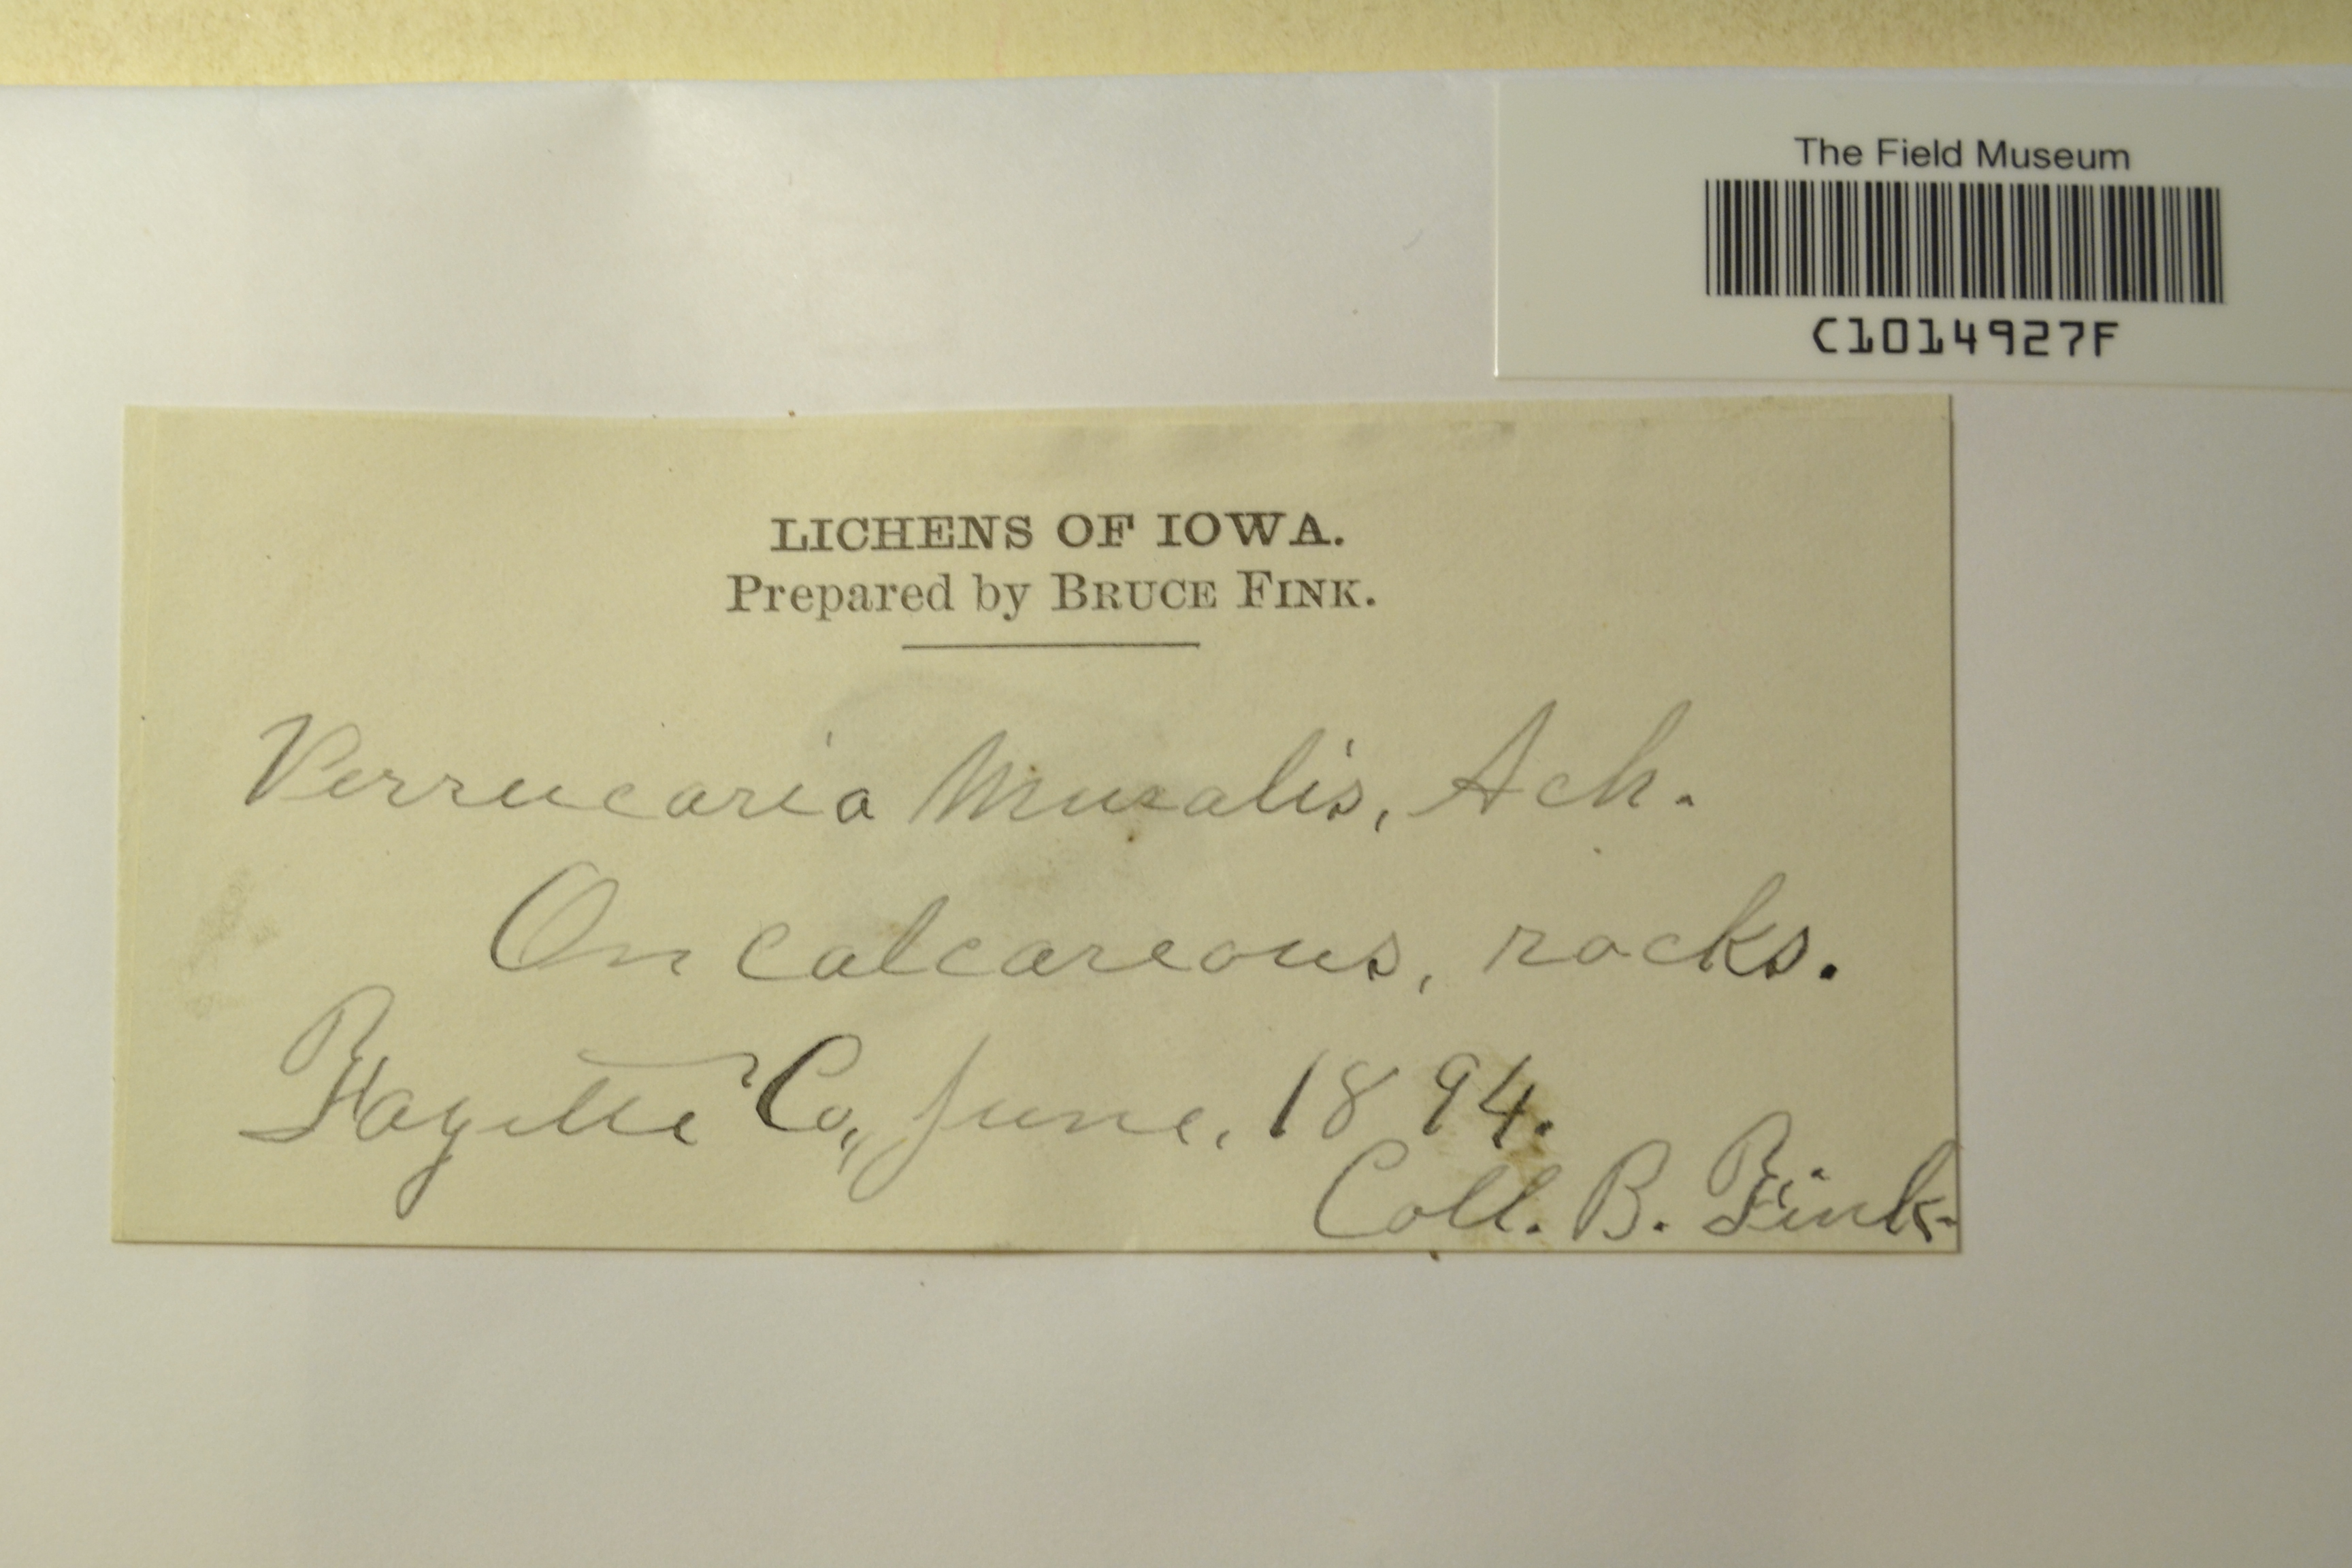 The Field Museum
C1014927F
LICHENS OF IOWA.
Prepared by BRUCE FINK.
Verrucaria Muralis, Ach.
On calcareous, rocks.
Fayette Co., June, 1894.
Coll. B. Fink.